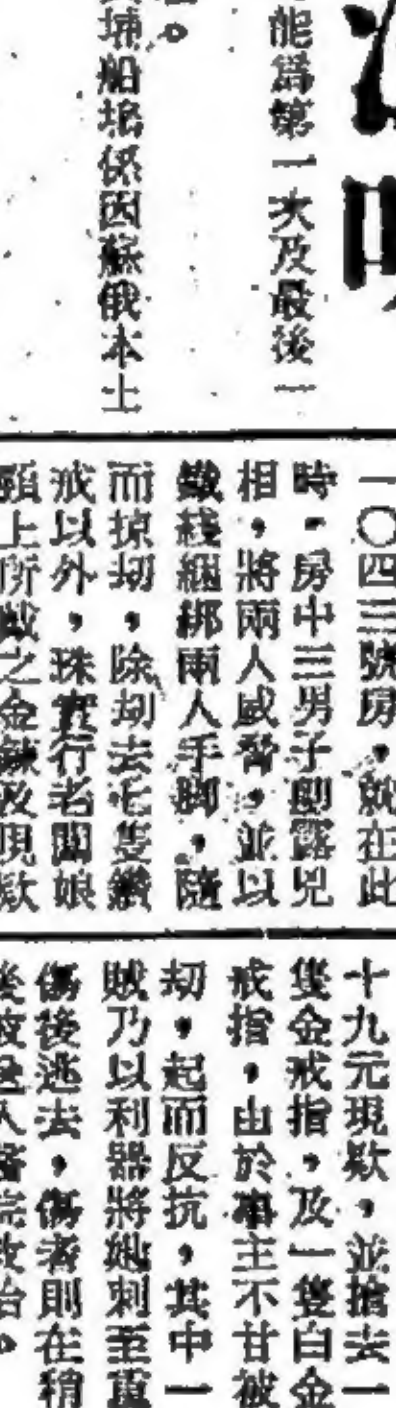 能爲第一次及最後一
埔船塢係因蘇俄本土
一〇四三號房，就在此
時，房中三男子即露兇
相，將兩人威脅，並以
鐵綫綑綁兩人手脚，隨
而掠刧，除刧去七隻鑽
戒以外，珠寶行老闆娘
頸上所戴之金鍊及現欵
十九元現欵，並搶去一
隻金戒指，及一隻白金
戒指，由於事主不甘被
刧，起而反抗，其中一
賊乃以利器將她刺至重
傷後逃去，傷者則在稍
後被送入醫院救治。